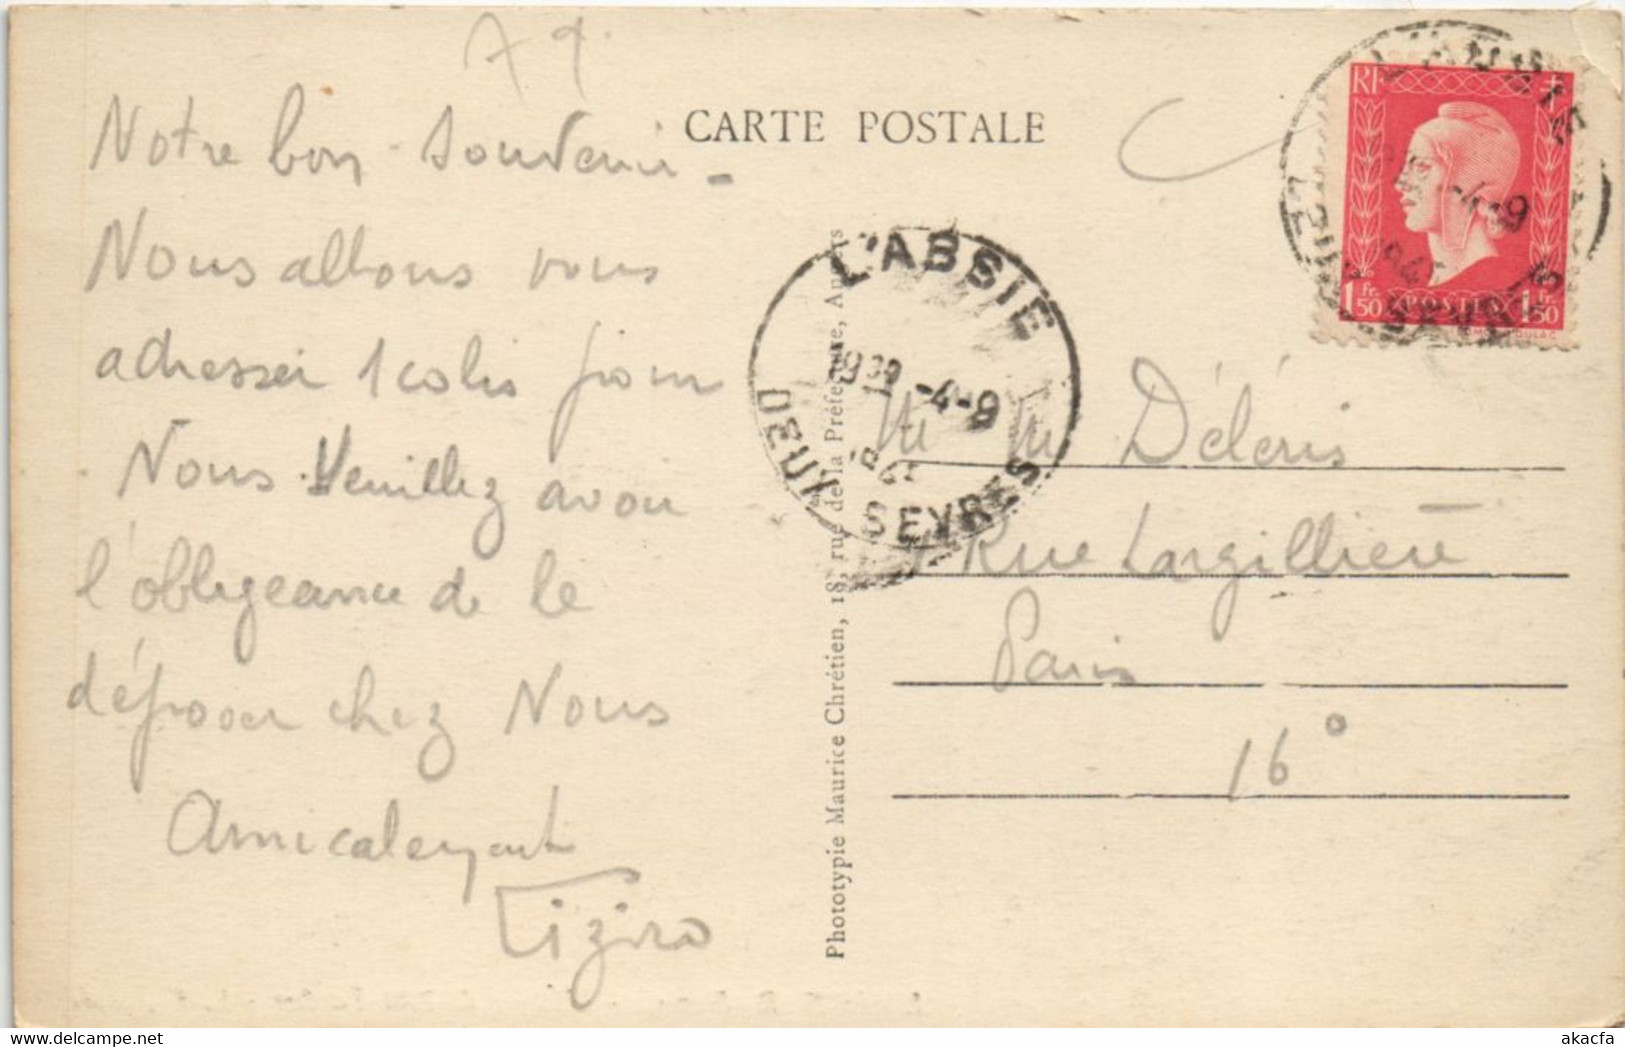 79
CARTE POSTALE
Notre bon souvenir -
Nous allons vous
adresser 1 colis pour
Nous Veuillez avoir
l'obligeance de le
déposer chez Nous
Amicalement
RF
1 Fr. 50 POSTES 1 Fr. 50
L'ABSIE
-4-9
DEUX SEVRES
L'ABSIE
-4-9
DEUX-SEVRES
M M Déléris
Rue Largillière
Paris
16°
Phototypie Maurice Chrétien, 18, rue de la Préfecture, Angers
akacfa
delcampe.net